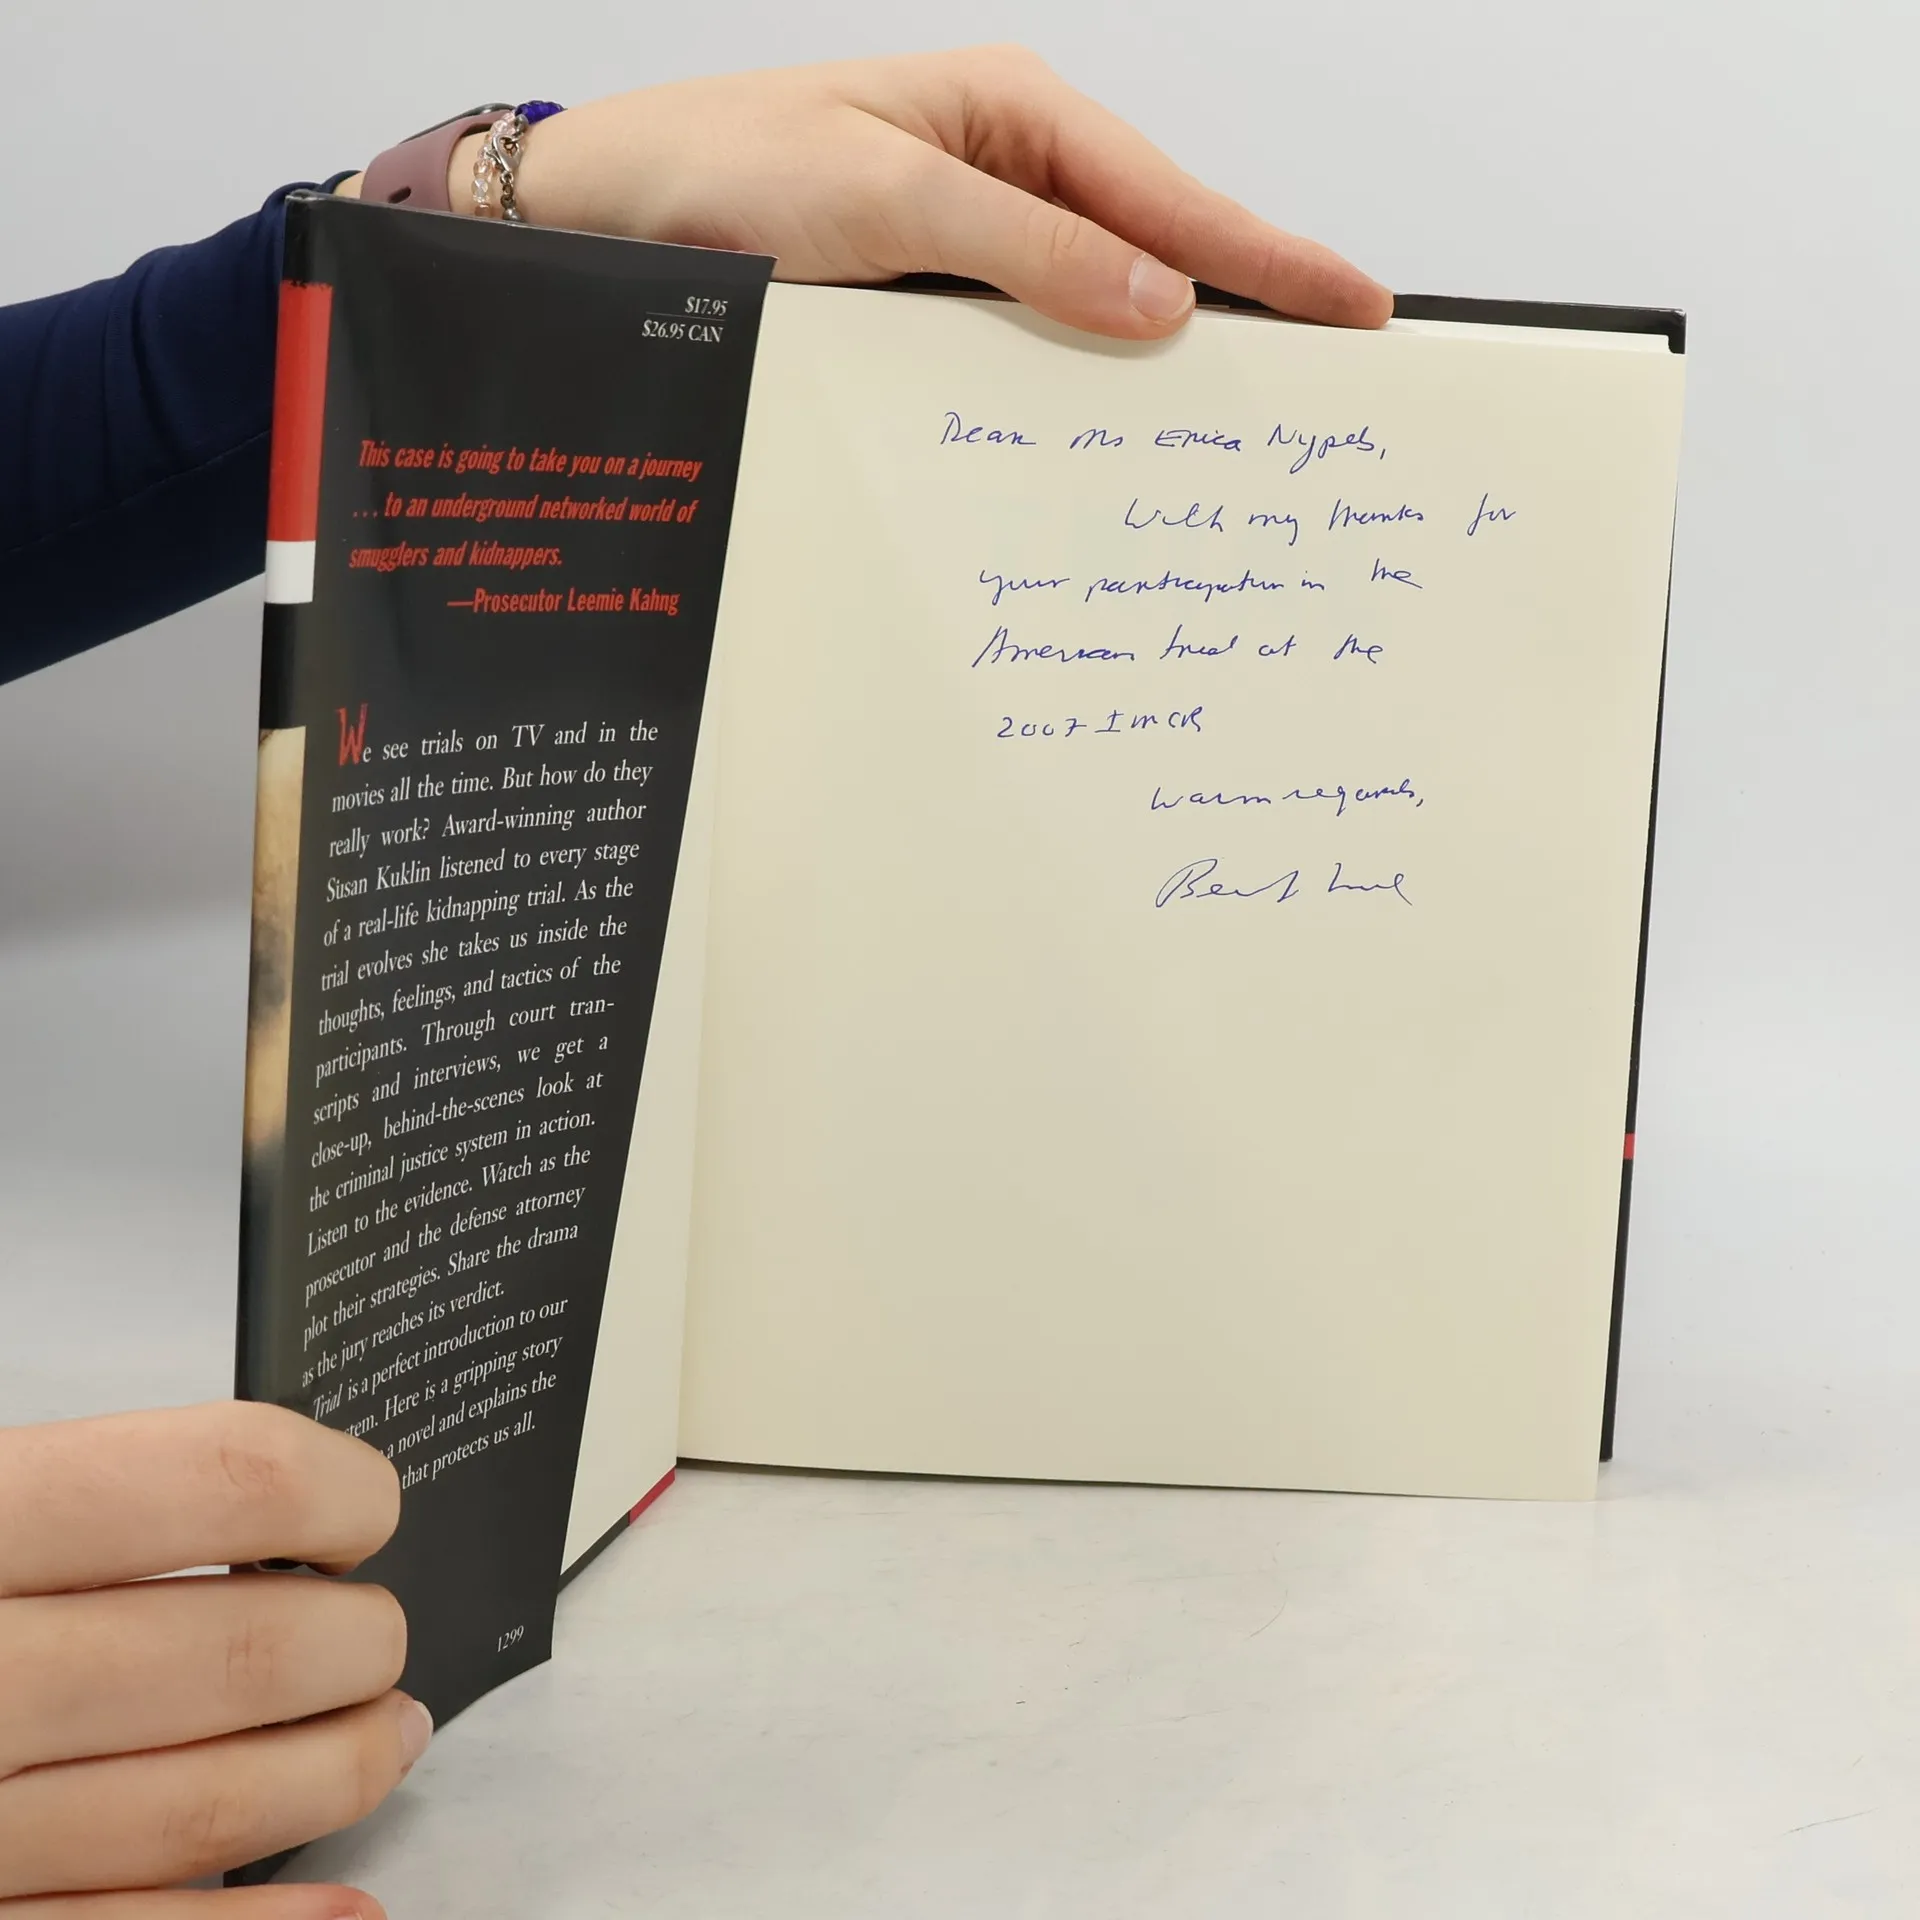 $17.95
$26.95 CAN
This case is going to take you on a journey
... to an underground networked world of
smugglers and kidnappers.
—Prosecutor Leemie Kahng
We see trials on TV and in the
movies all the time. But how do they
really work? Award-winning author
Susan Kuklin listened to every stage
of a real-life kidnapping trial. As the
trial evolves she takes us inside the
thoughts, feelings, and tactics of the
participants. Through court tran-
scripts and interviews, we get a
close-up, behind-the-scenes look at
the criminal justice system in action.
Listen to the evidence. Watch as the
prosecutor and the defense attorney
plot their strategies. Share the drama
as the jury reaches its verdict.
Trial is a perfect introduction to our
stem. Here is a gripping story
a novel and explains the
that protects us all.
1299
Dear Ms Erica Nypels,
With my thanks for
your participation in the
American trial at the
2007 IMCR
Warm regards,